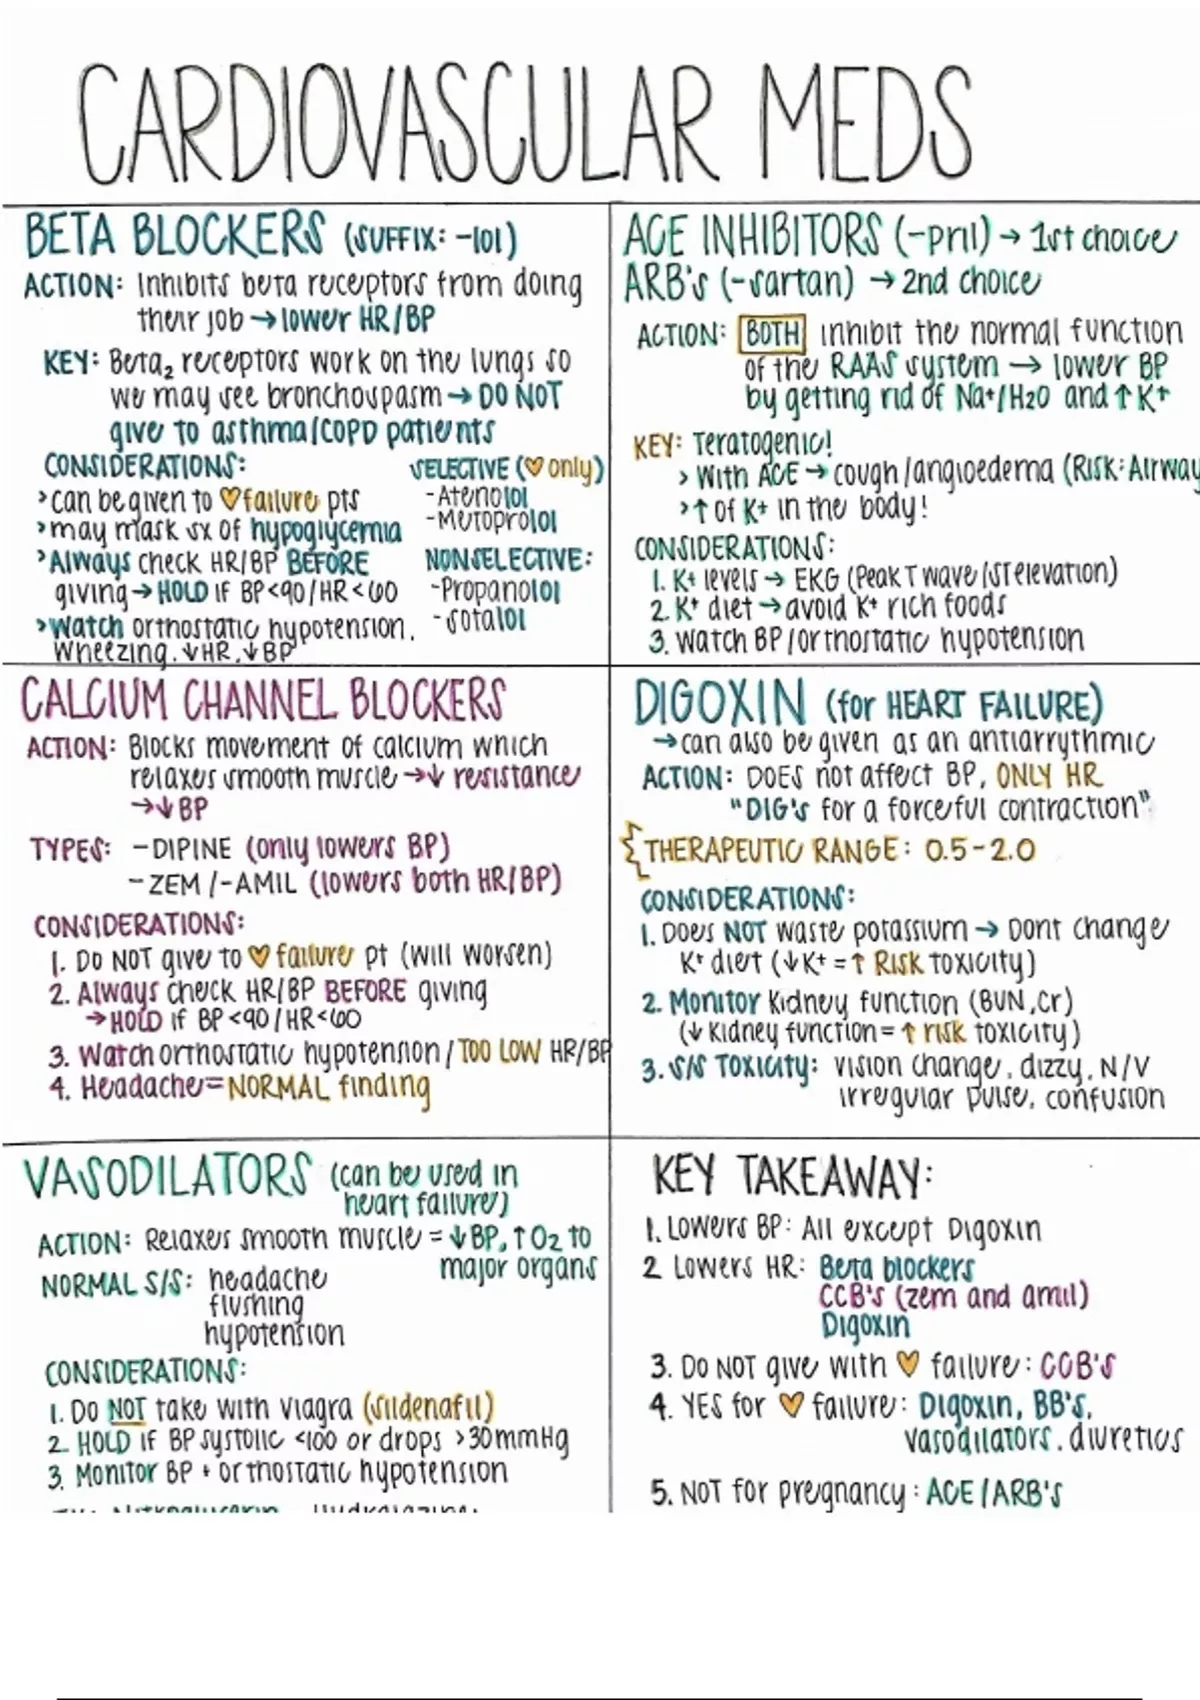 CARDIOVASCULAR MEDS
BETA BLOCKERS (SUFFIX: -lol)
ACTION: Inhibits beta receptors from doing
their job → lower HR/BP
KEY: Beta₂ receptors work on the lungs so
we may see bronchospasm → DO NOT
give to asthma/COPD patients
CONSIDERATIONS:
> can be given to ♡ failure pts
> may mask sx of hypoglycemia
> Always check HR/BP BEFORE
giving → HOLD if BP<90/HR<60
> Watch orthostatic hypotension,
Wheezing, ↓HR, ↓BP
SELECTIVE (♡ only)
- Atenolol
- Metoprolol
NONSELECTIVE:
- Propanolol
- Sotalol
ACE INHIBITORS (-pril) → 1st choice
ARB's (-sartan) → 2nd choice
ACTION: BOTH inhibit the normal function
of the RAAS system → lower BP
by getting rid of Na+/H2O and ↑ K+
KEY: Teratogenic!
> With ACE → cough/angioedema (Risk: Airway
> ↑ of K+ in the body!
CONSIDERATIONS:
1. K+ levels → EKG (Peak T wave/ST elevation)
2. K+ diet → avoid K+ rich foods
3. Watch BP/orthostatic hypotension
CALCIUM CHANNEL BLOCKERS
ACTION: Blocks movement of calcium which
relaxes smooth muscle → ↓ resistance
→ ↓ BP
TYPES: -DIPINE (only lowers BP)
-ZEM/-AMIL (lowers both HR/BP)
CONSIDERATIONS:
1. Do NOT give to ♡ failure pt (will worsen)
2. Always check HR/BP BEFORE giving
→ HOLD if BP<90/HR<60
3. Watch orthostatic hypotension/TOO LOW HR/BP
4. Headache = NORMAL finding
DIGOXIN (for HEART FAILURE)
→ can also be given as an antiarrythmic
ACTION: DOES not affect BP, ONLY HR
"DIG's for a forceful contraction"
THERAPEUTIC RANGE: 0.5-2.0
CONSIDERATIONS:
1. Does NOT waste potassium → Dont change
K+ diet (↓K+ = ↑ Risk toxicity)
2. Monitor Kidney function (BUN, Cr)
(↓ Kidney function = ↑ risk toxicity)
3. S/S TOXICITY: vision change, dizzy, N/V
irregular pulse, confusion
VASODILATORS (can be used in
heart failure)
ACTION: Relaxes smooth muscle = ↓BP, ↑O2 to
major organs
NORMAL S/S: headache
flushing
hypotension
CONSIDERATIONS:
1. Do NOT take with Viagra (sildenafil)
2. HOLD if BP systolic <100 or drops >30mmHg
3. Monitor BP + orthostatic hypotension
KEY TAKEAWAY:
1. Lowers BP: All except Digoxin
2 Lowers HR: Beta blockers
CCB's (zem and amil)
Digoxin
3. Do NOT give with ♡ failure: CCB's
4. YES for ♡ failure: Digoxin, BB's,
vasodilators, diuretics
5. NOT for pregnancy: ACE/ARB's